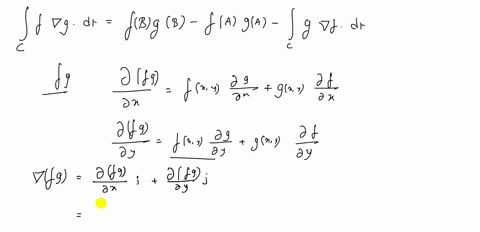 ∫_C f ∇g. dr = f(B)g(B) - f(A) g(A) - ∫_C g ∇f. dr
fg ∂(fg)/∂x = f(x,y) ∂g/∂x + g(x,y) ∂f/∂x
∂(fg)/∂y = f(x,y) ∂g/∂y + g(x,y) ∂f/∂y
∇(fg) = ∂(fg)/∂x i + ∂(fg)/∂y j
=